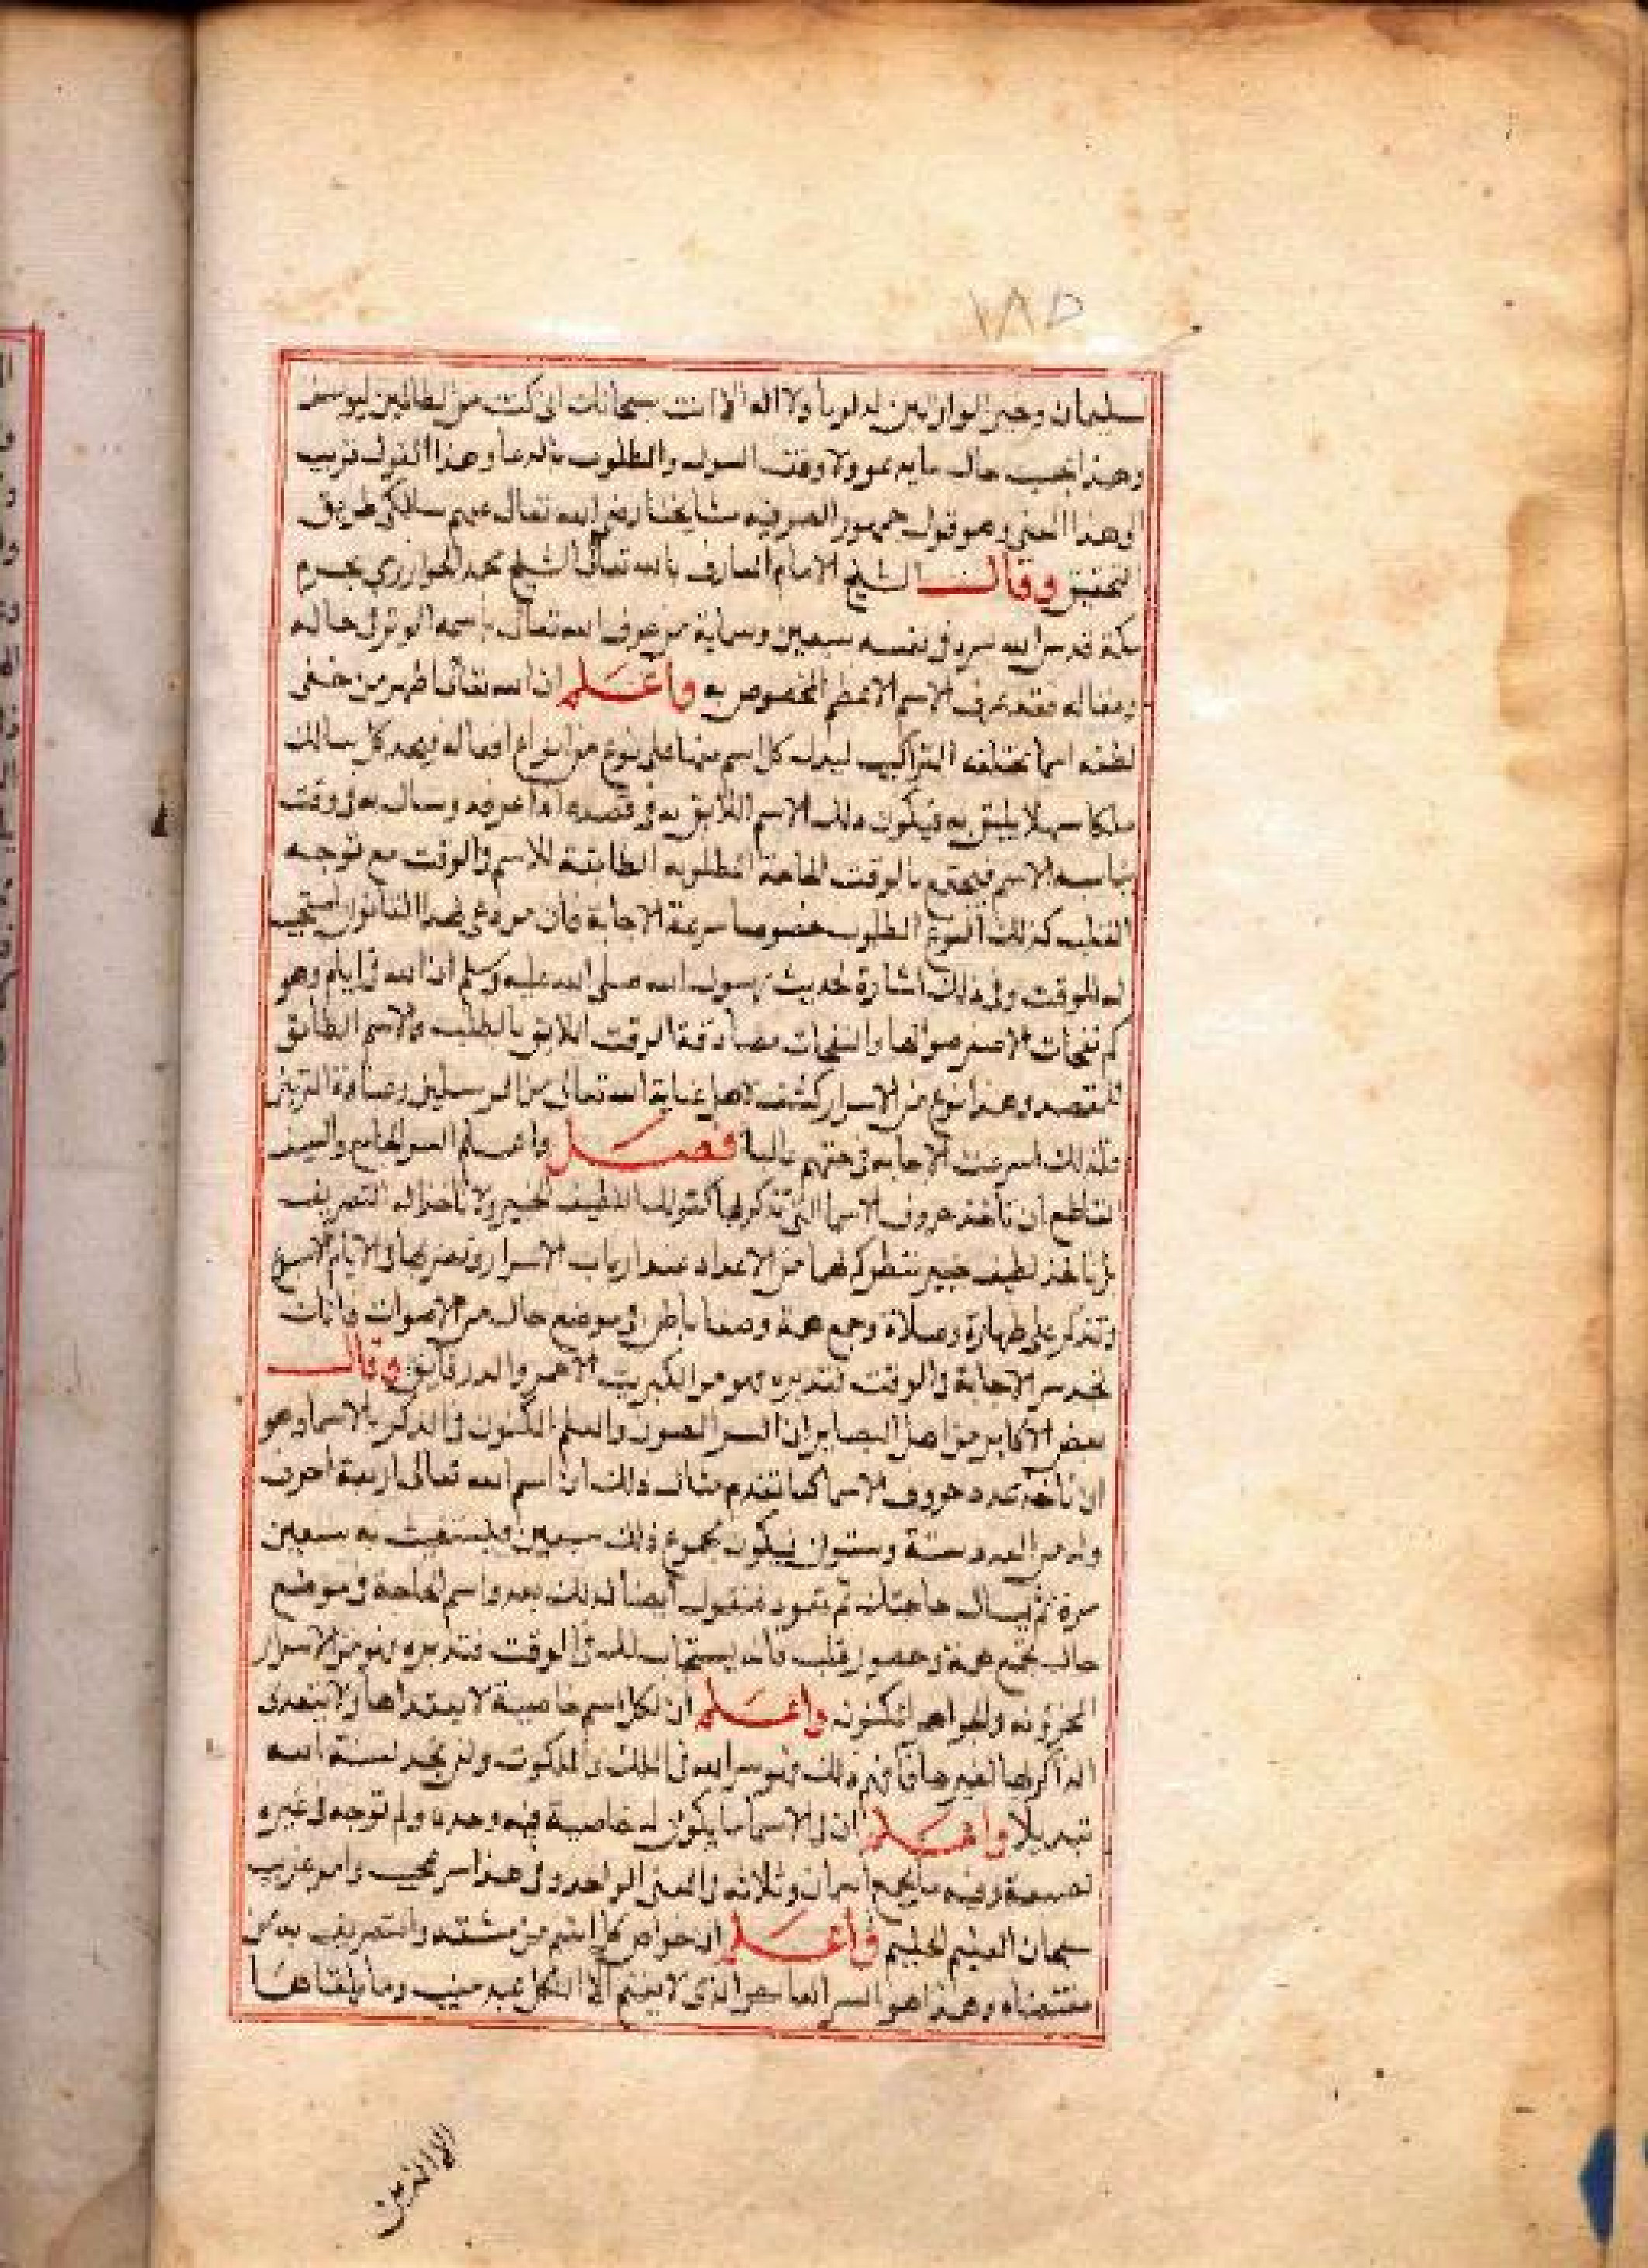 ١٨٥
سليمان وخير الوارثين لزكريا ولا اله الا انت سبحانك اني كنت من الظالمين ليونس
وهذا بحسب حال ما يدعو ولا وقت السول والمطلوب بالدعا وهذا القول قريب
الى هذا المعنى وهو قول جمهور الصوفيه مشايخنا رضي الله تعالى عنهم سالكي طريق
التحقيق وقال الشيخ الامام العارف بالله تعالى الشيخ محمد الخوارزمي بحرم
مكة قدس الله سره في نفسه سبعين وسماية من عرف الله تعالى باسمه الوتر في حاله
ومقاله فقد عرف الاسم الاعظم المخصوص به واعلم ان الله تعالى اظهر من خفي
لطفه اسما مختلفه التراكيب ليدل كل اسم منها على نوع من انواع افعاله فيجد كل سالك
ملكا سهلا يليق به فيكون ذلك الاسم اللايق به في قصده اذا عرفه وسال به في وقت
يناسب الاسم فيجتمع بالوقت الحاجة المطلوبه المطابقة للاسم والوقت مع توجه
القلب كذلك المطلوب خصوصا سرعة الاجابة فان من دعي بهذا القانون استجيب
له للوقت وفي ذلك اشارة لحديث رسول الله صلى الله عليه وسلم ان لله في ايام دهر
كم نفحات الا فتعرضوا لها والنفحات مصادفة الوقت اللايق بالطلب والاسم المطابق
للمقصد وهذا نوع من الاسرار كشف لاهل عناية الله تعالى من المرسلين
فلذلك اسرعت الاجابه في حقهم فصل واعلم السر الجامع والسيف
القاطع ان تاخذ حروف الاسما التي تذكر بها كقولك اللطيف الخبير ولا تاخذ ال التعريف
بل تاخذ لطيف خبير تنظر كم لهما من الاعداد عند ارباب الاسرار وتضربها في الايام السبع
وتذكر على طهارة وصلاة وجمع همة وصفا باطن وفي موضع خال من الاصوات فانك
تجد سر الاجابة في الوقت فتدبره فهو من الكبريت الاحمر والدر فايق وقال
بعض الاكابر من اهل البصاير ان السر المصون والعلم المكنون في الذكر بالاسما وهو
ان تاخذ عدد حروف الاسما كما تقدم مثال ذلك ان اسم الله تعالى اربعة احرف
وله من العدد ستة وستون فيكون مجموع ذلك سبعين فيستغيث به سبعين
مرة ثم يسال حاجتك ثم تعود فتقول ايضا كذلك بعدد اسم الحاجة في موضع
خال بجمع همة وحضور قلب فانه يستجاب لك في الوقت فتدبره فهو من الاسرار
المخزونه والجواهر المكنونه واعلم ان لكل اسم خاصية لا يتعداها ولا يتعدى
الذاكر بها لغيرها فافهم ذلك فهو سر الله في الملك والملكوت ولن تجد لسنة الله
تبديلا واعلم ان في الاسما ما يكون له خاصية فيه وحده ولم توجد في غيره
وفيه ما يجمع اسمان وثلاثه في المعنى الواحد وفي هذا سر عجيب وامر غريب
سبحان العظيم الحليم واعلم ان خواص كل اسم من مشتقه والتصريف به من
مقتضاه وهذا هو السر الغامض الذي لا يفهم الا لكل عبد منيب وما يلقاها
الا الذين